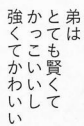 弟は
とても賢くて
かっこいいし
強くてかわいい